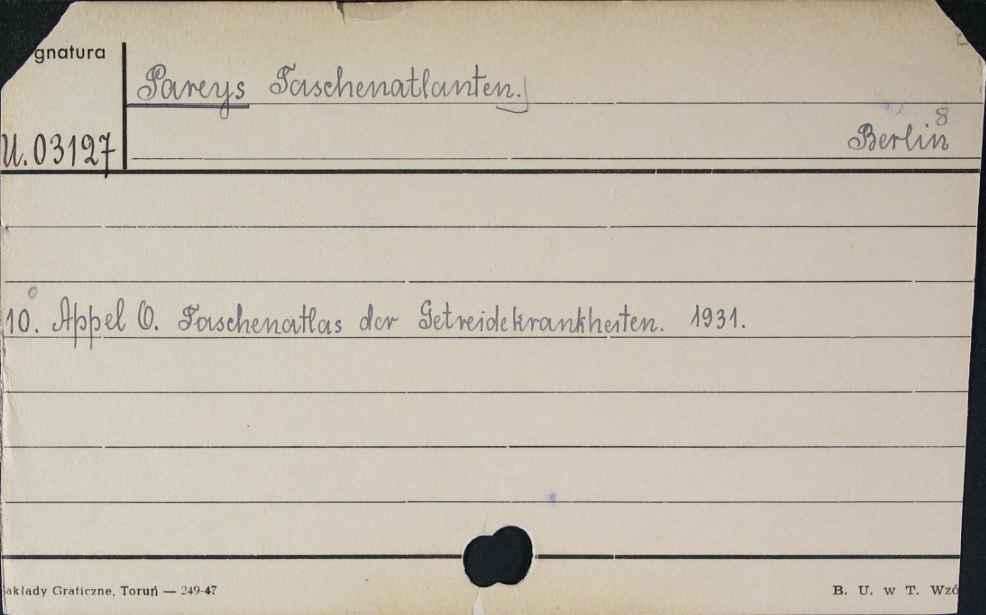 gnatura
Pareys Taschenatlanten.
8
U.03127
Berlin
10. Appel O. Taschenatlas der Getreidekrankheiten. 1931.
akłady Graficzne, Toruń — 249-47
B. U. w T. Wzó